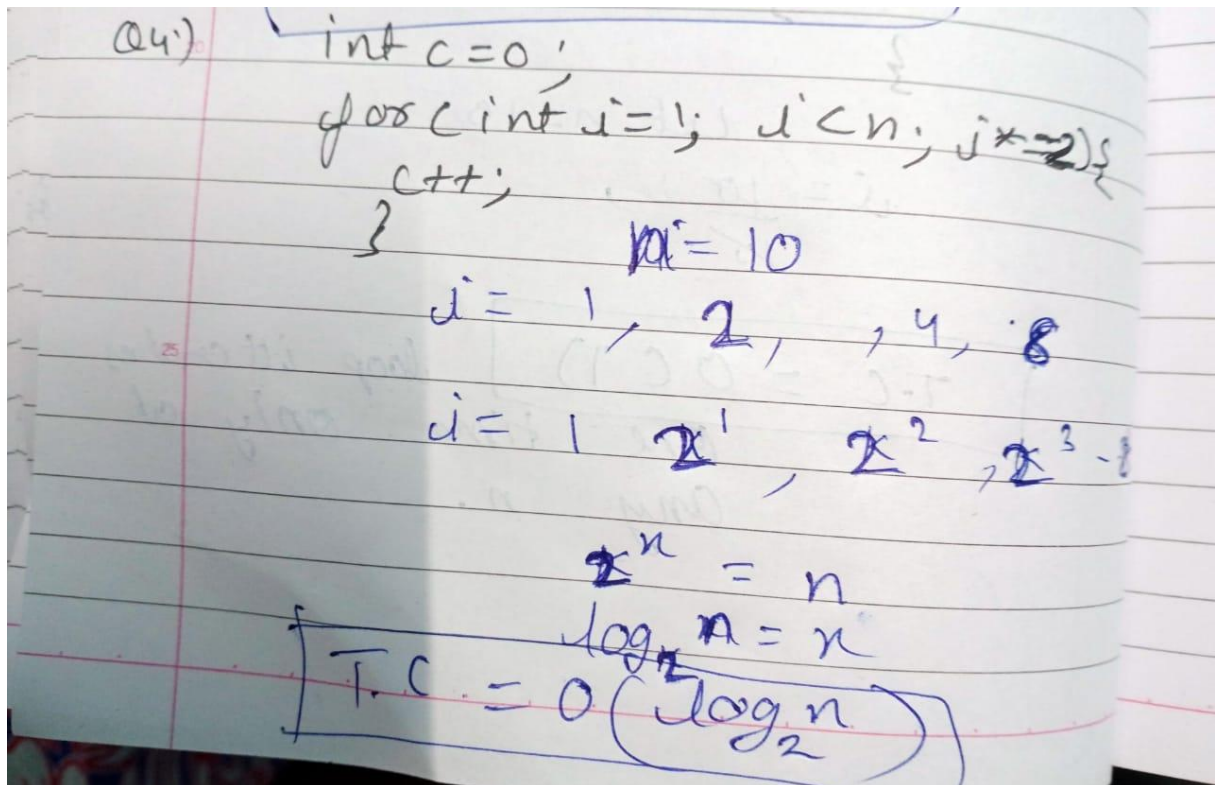 Q4.) int c=0;
for(int i=1; i<n; i*=2){
c++;
}
n = 10
i = 1, 2, , 4, 8
i = 1 2¹, 2², 2³ - 8
2ˣ = n
log₂ n = x
T.C. = O(log₂n)
25